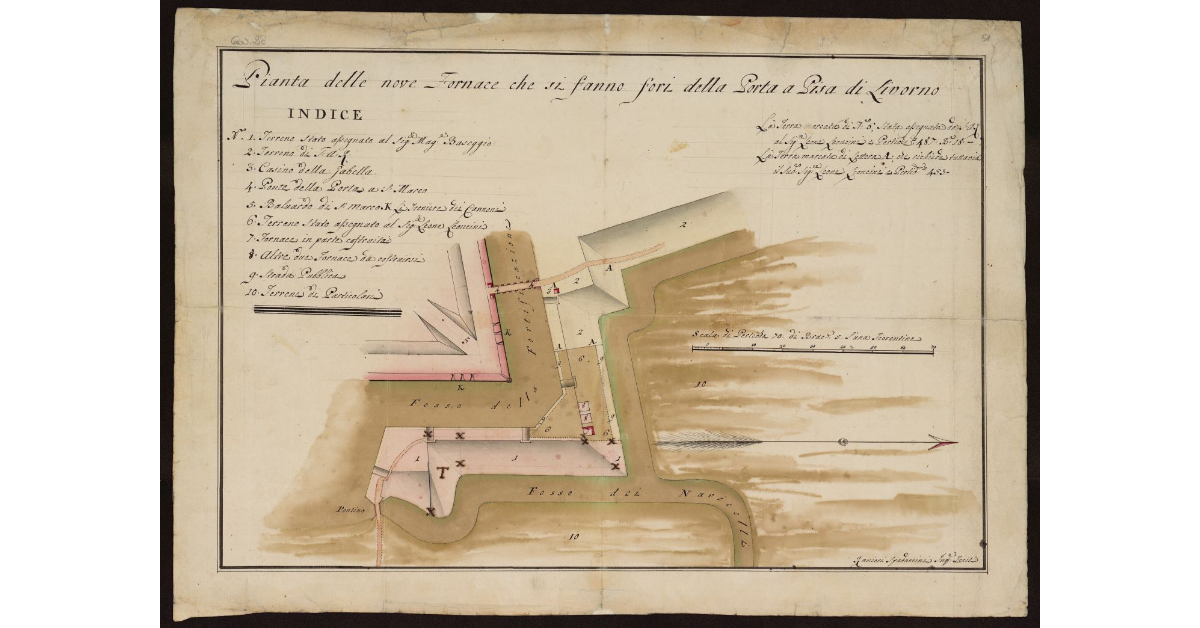 Pianta delle nove Fornace che si fanno fori della Porta a Pisa di Livorno
INDICE
Nº. 1. Terreno Stato assegnato al Sig.
2. Terreno di S.A.R.
3. Casino della Gabella
4. Ponte della Porta a S. Marco
5. Baluardo di S. Marco K Le Troniere dei Cannoni
6. Terreno Stato assegnato al Sig. Leone
7. Fornace in parte costruita
8. Altre due Fornace da costruirsi
9. Strada Pubblica
10. Terreni di Particolari
La Terra marcata di Nº. 6. Stata assegnata da S.A.R.
al Sig. Leone e Pertiche 487
La Terra marcata di Lettera A, che
il Sud. Sig. Leone e Pertiche 453
Scala di Pertiche 70. di Brac. 5. l'una Fiorentine
Fosso della Fortificazione
Fosso dei Navicelli
Pontino
10
10
1
1
1
2
2
2
5
6
6
9
A
A
A
A
K
K
T